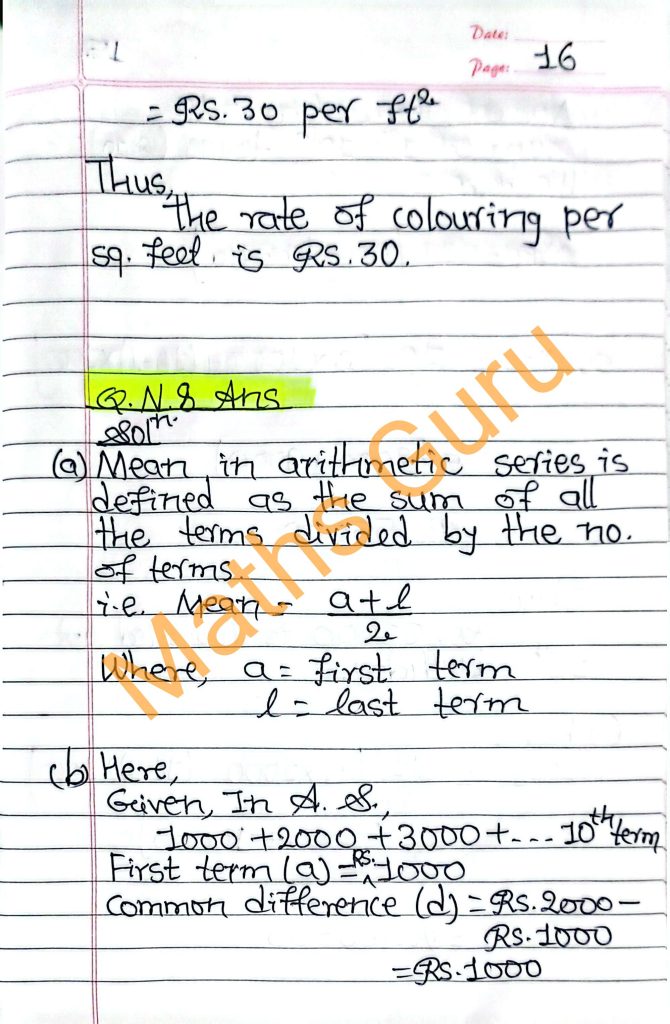 Date:
Page: 16
= RS. 30 per ft²
Thus,
the rate of colouring per
sq. feet. is RS. 30.
Q. N. 8 Ans
Solⁿ.
(a) Mean in arithmetic series is
defined as the sum of all
the terms divided by the no.
of terms.
i.e. Mean = a+l
2
Where, a = first term
l = last term
(b) Here,
Given, In A. S.,
1000 + 2000 + 3000 + ... 10th term
First term (a) = RS. 1000
Common difference (d) = RS. 2000 -
RS. 1000
= RS. 1000
Maths Guru